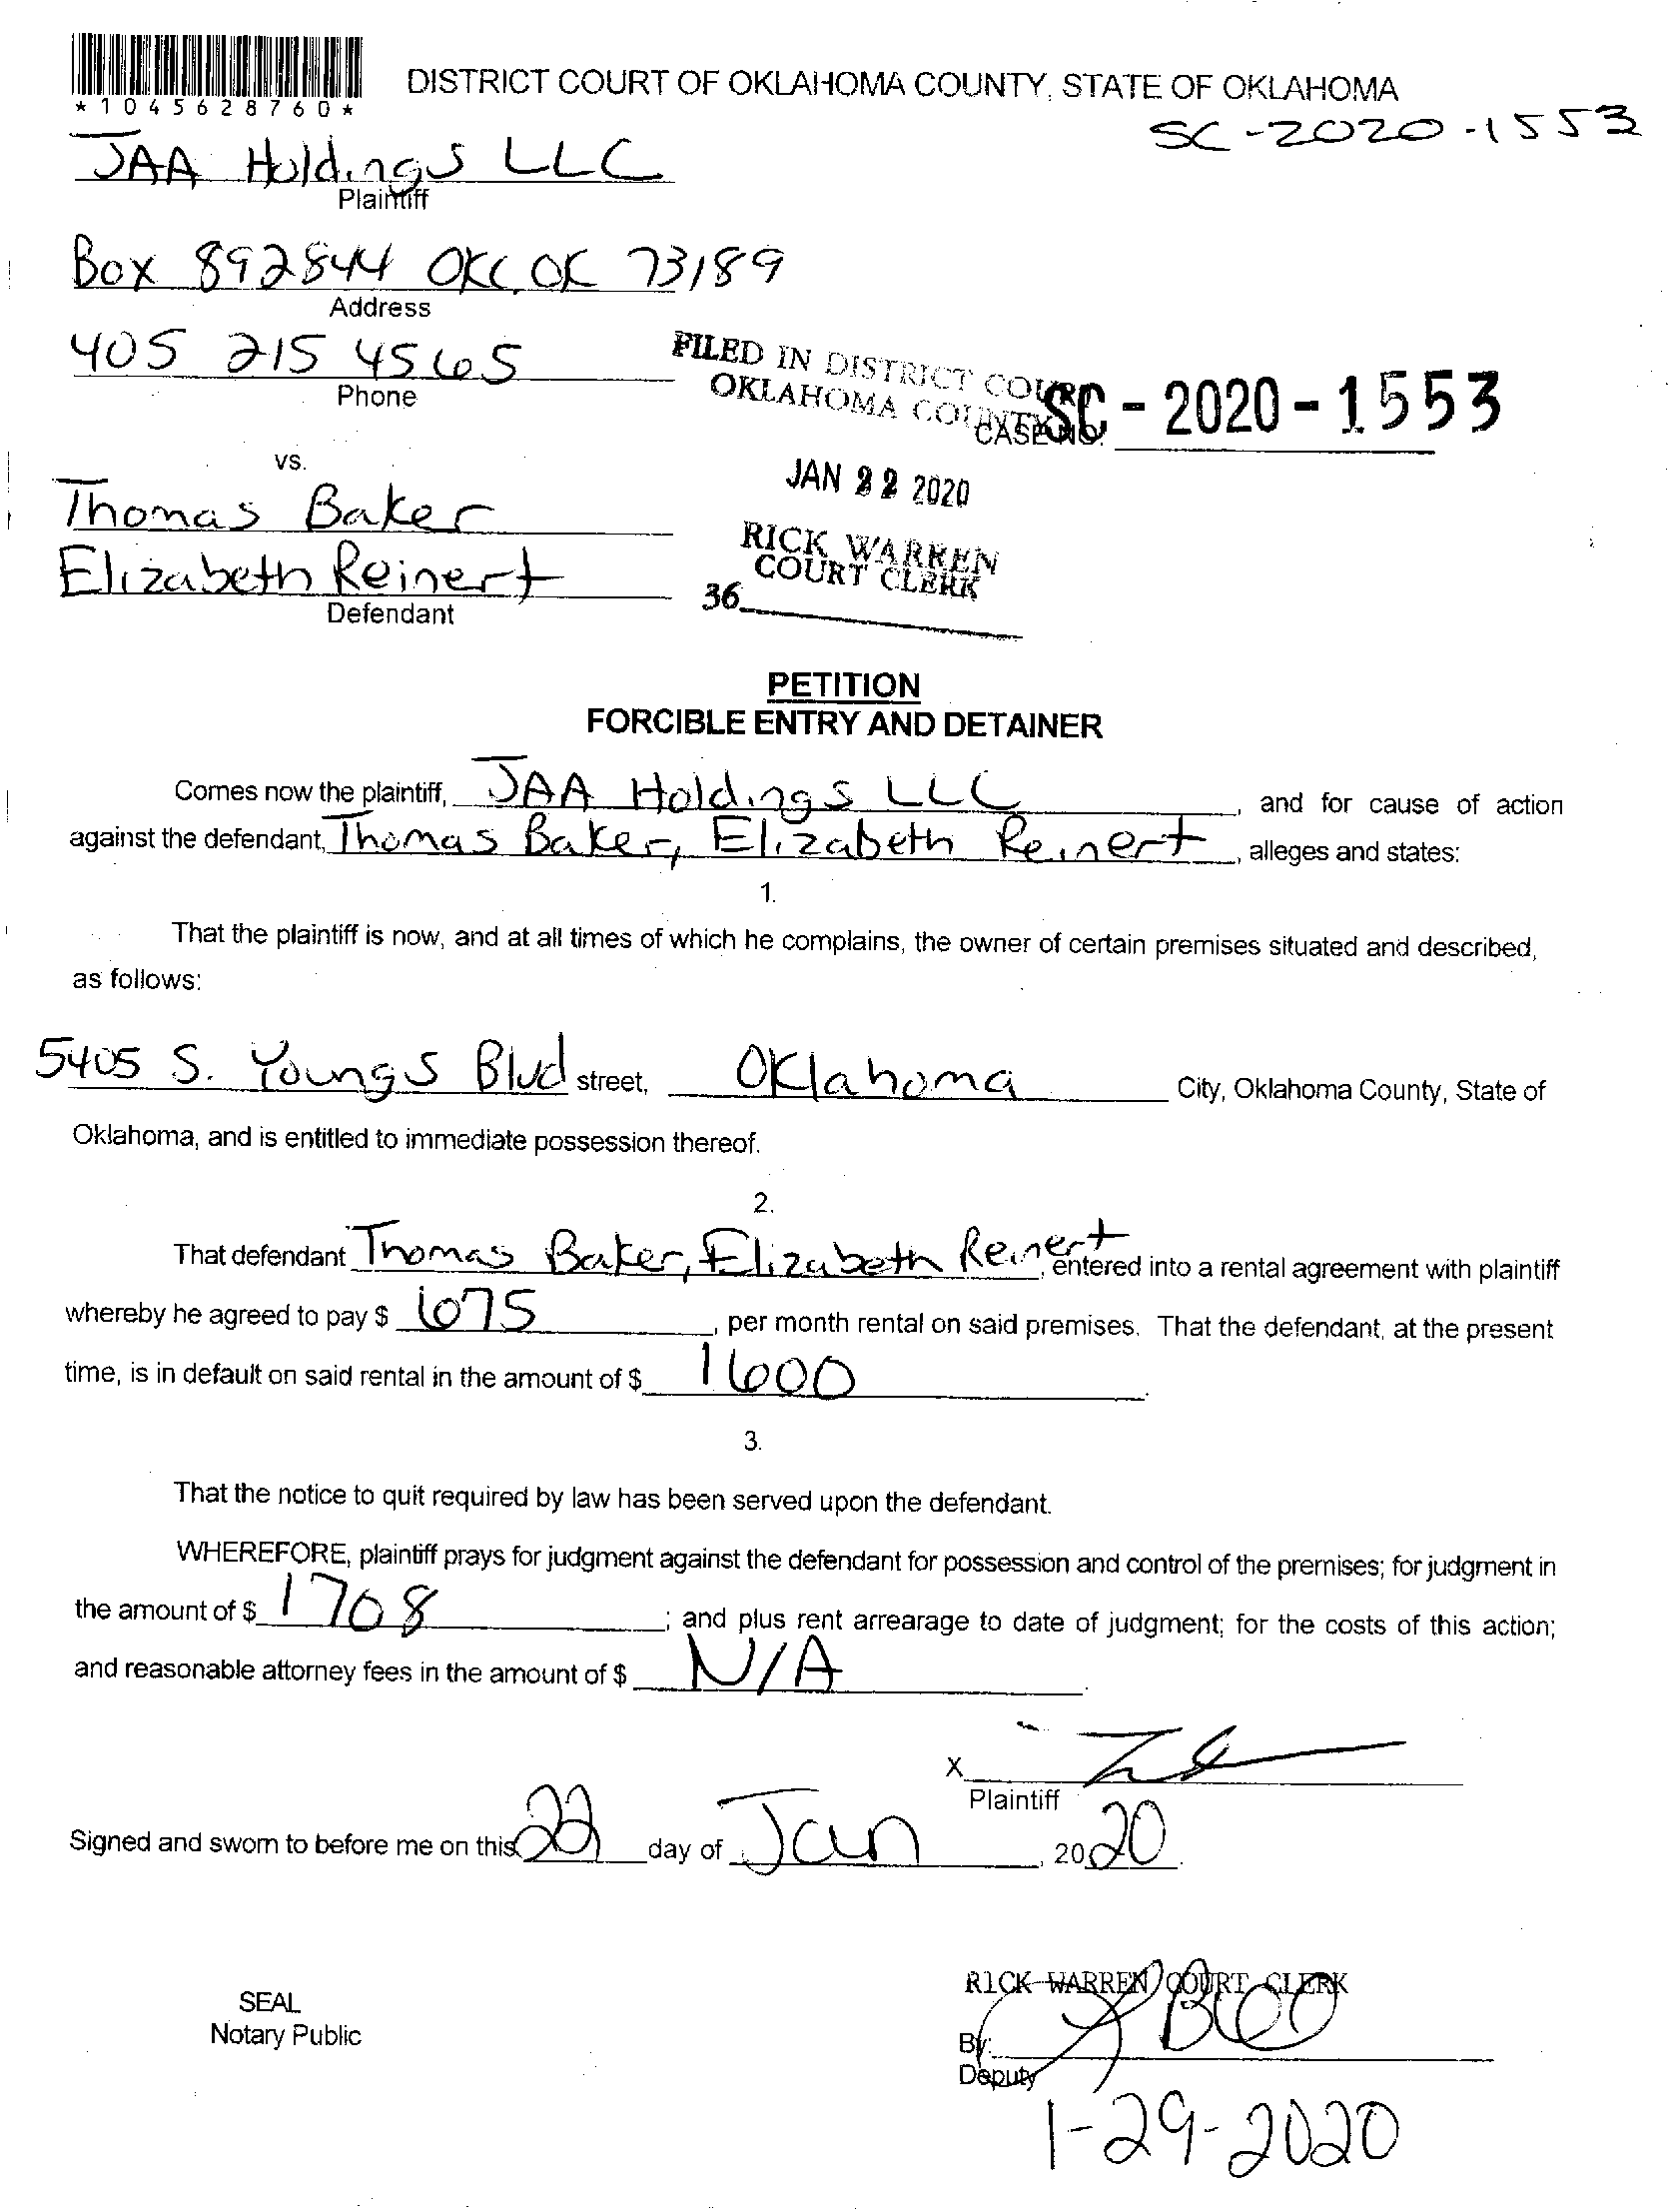 *1045628760*
DISTRICT COURT OF OKLAHOMA COUNTY, STATE OF OKLAHOMA
SC-2020-1553
JAA Holdings LLC
Plaintiff
Box 892844 OKC, OK 73189
Address
405 215 4565
Phone
FILED IN DISTRICT COURT
OKLAHOMA COUNTY
CASE NO. SC-2020-1553
JAN 22 2020
vs.
Thomas Baker
Elizabeth Reinert
Defendant
RICK WARREN
COURT CLERK
36
PETITION
FORCIBLE ENTRY AND DETAINER
Comes now the plaintiff, JAA Holdings LLC, and for cause of action
against the defendant, Thomas Baker, Elizabeth Reinert, alleges and states:
1.
That the plaintiff is now, and at all times of which he complains, the owner of certain premises situated and described,
as follows:
5405 S. Youngs Blvd street, Oklahoma City, Oklahoma County, State of
Oklahoma, and is entitled to immediate possession thereof.
2.
That defendant Thomas Baker, Elizabeth Reinert, entered into a rental agreement with plaintiff
whereby he agreed to pay $ 675, per month rental on said premises. That the defendant, at the present
time, is in default on said rental in the amount of $ 1600.
3.
That the notice to quit required by law has been served upon the defendant.
WHEREFORE, plaintiff prays for judgment against the defendant for possession and control of the premises; for judgment in
the amount of $ 1708; and plus rent arrearage to date of judgment; for the costs of this action;
and reasonable attorney fees in the amount of $ N/A.
X
Plaintiff
Signed and sworn to before me on this 22 day of Jan, 2020.
RICK WARREN COURT CLERK
SEAL
Notary Public
By:
Deputy
1-29-2020